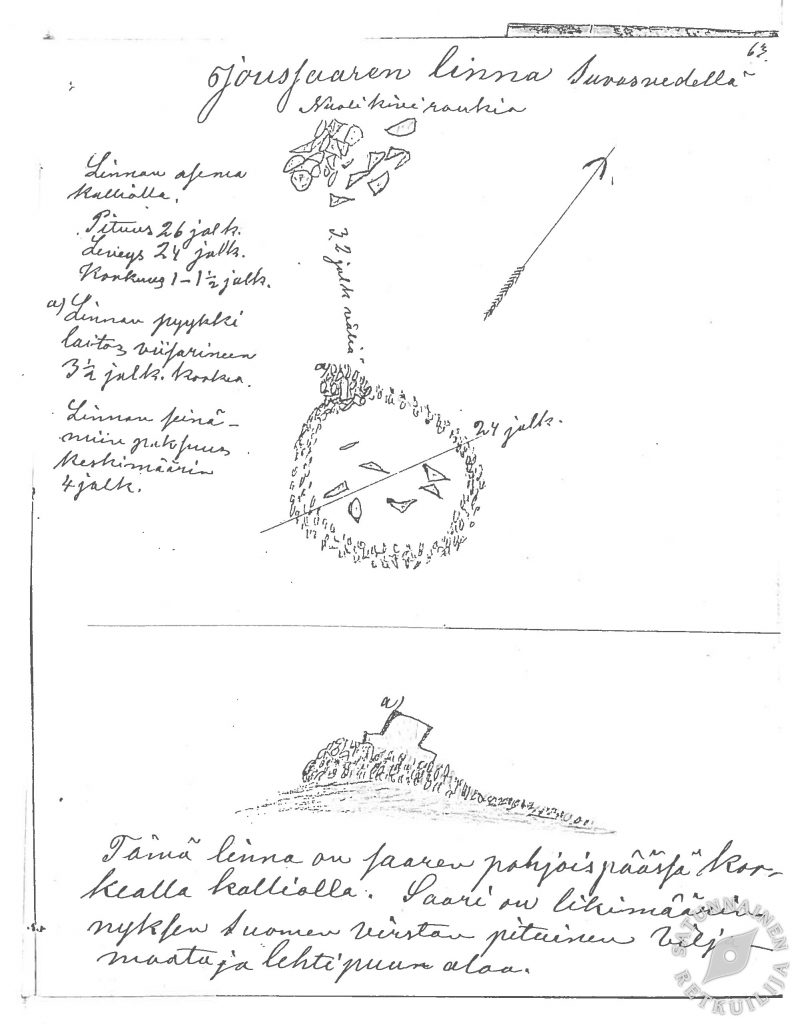 63.
Joussaaren linna Suvasvedellä
Nuolikiviraukkia
Linnan asema
kalliolla.
Pituus 26 jalk.
Leveys 24 jalk.
Korkuus 1–1½ jalk.
a) Linnan pyykki
laitos viisarineen
3½ jalk. korkea.
Linnan seinä-
miin paksuus
keskimäärin
4 jalk.
32 jalk väliä
a)
24 jalk.
a)
Tämä linna on saaren pohjoispäässä kor-
kealla kalliolla. Saari on likimäärin
yksen Suomen virstan pituinen vilj-
maata ja lehtipuun alaa.
SATUNNAINEN RETKEILIJÄ